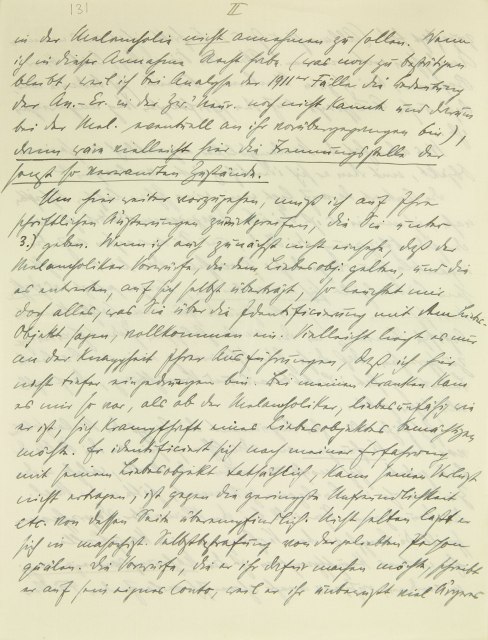 131
II
in der Melancholie nicht annehmen zu sollen. Wenn
ich in dieser Annahme Recht habe (was noch zu bestätigen
bleibt, weil ich bei Analyse der 1911er Fälle die Bedeutung
der An.-Er. in der Zw. Neur. noch nicht kannte und darum
bei der Mel. eventuell an ihr vorübergegangen bin),
dann wäre vielleicht hier die Trennungsstelle der
sonst so verwandten Zustände.
Um hier weiter vorzugehen, muß ich auf Ihre
schriftlichen Äußerungen zurückgreifen, die Sie unter
3.) geben. Wenn ich auch zunächst nicht einsehe, daß der
Melancholiker Vorwürfe, die dem Liebesobj. gelten, und die
es entwerten, auf sich selbst überträgt, so leuchtet mir
doch alles, was Sie über die Identifizierung mit dem Liebes-
Objekt sagen, vollkommen ein. Vielleicht liegt es nur
an der Knappheit Ihrer Ausführungen, daß ich hier
nicht tiefer eingedrungen bin. Bei meinen Kranken kam
es mir so vor, als ob der Melancholiker, liebesunfähig wie
er ist, sich krampfhaft eines Liebesobjektes bemächtigen
möchte. Er identificiert sich nach meiner Erfahrung
mit seinem Liebesobjekt tatsächlich, kann seinen Verlust
nicht ertragen, ist gegen die geringste Unfreundlichkeit
etc. von dessen Seite überempfindlich. Nicht selten läßt er
sich in masochist. Selbstbestrafung von der geliebten Person
quälen. Die Vorwürfe, die er ihr dafür machen möchte, schreibt
er auf sein eignes Conto, weil er ihr unbewußt viel Ärgeres